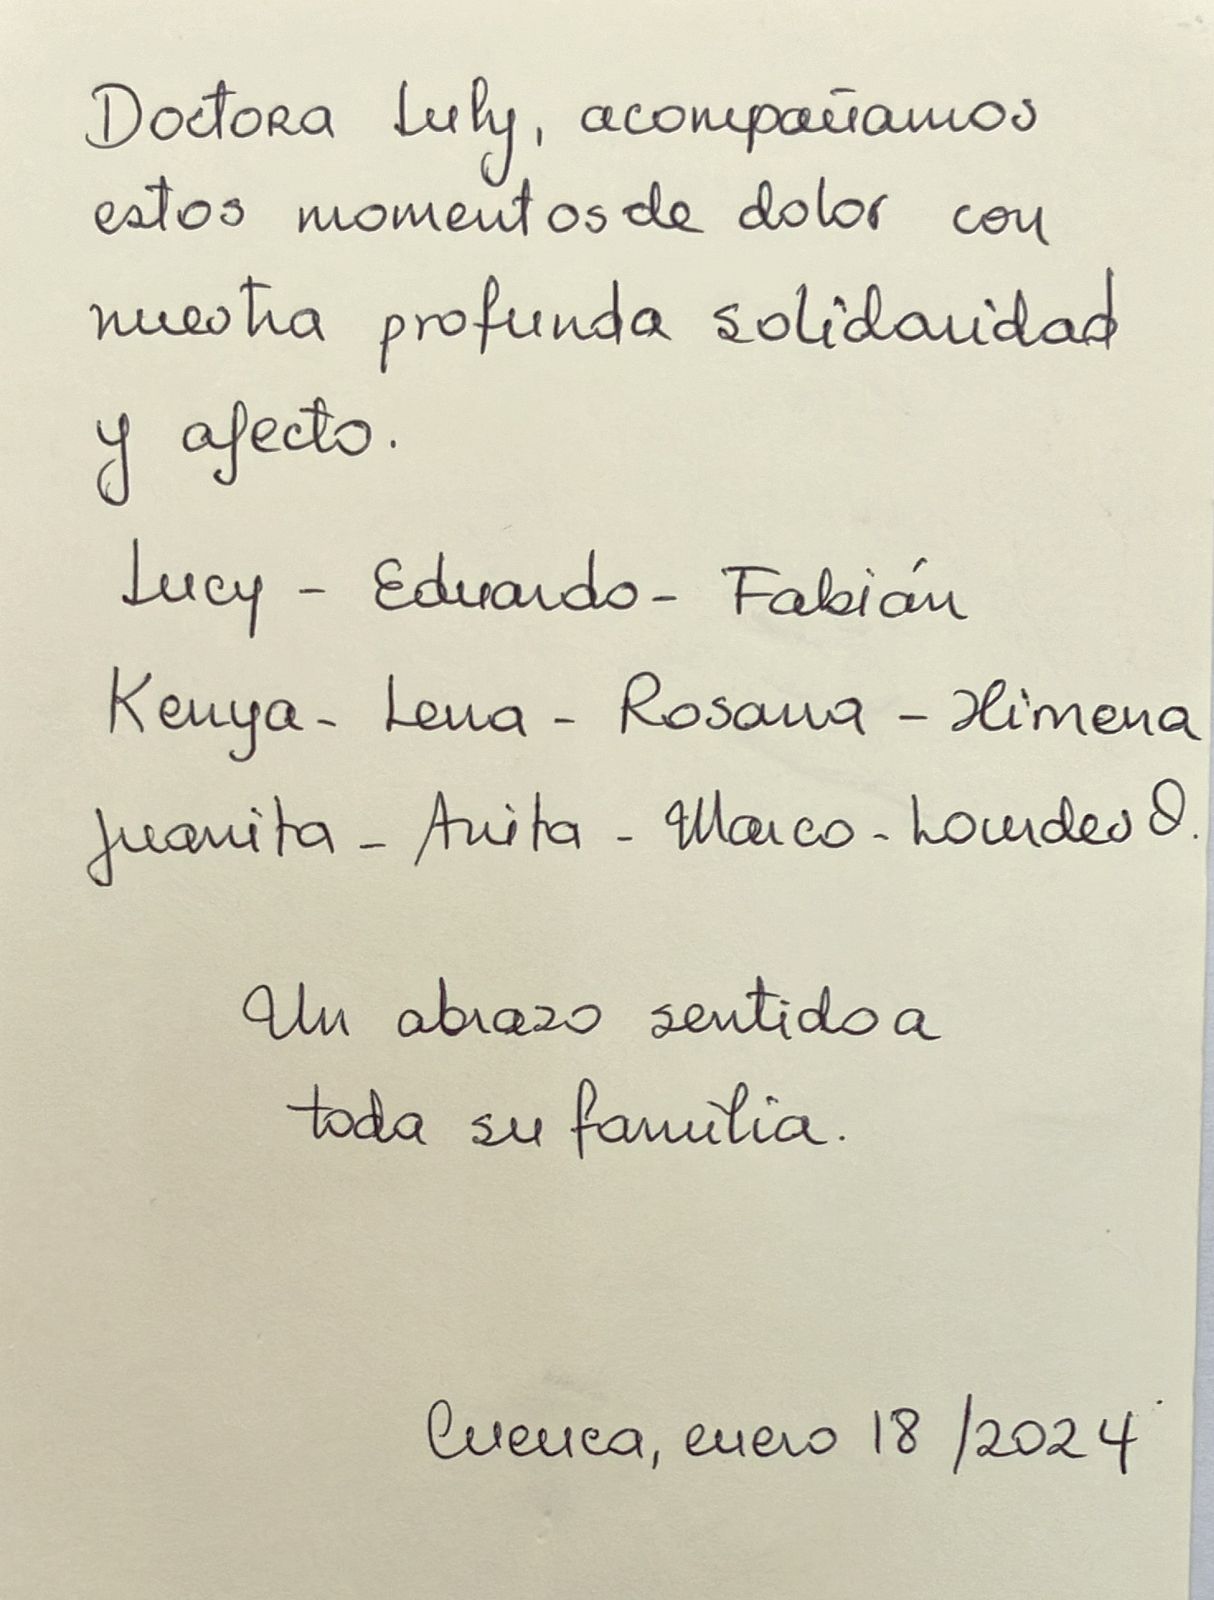 Doctora Luly, acompañamos
estos momentos de dolor con
nuestra profunda solidaridad
y afecto.
Lucy - Eduardo - Fabián
Kenya - Lena - Rosana - Ximena
Juanita - Anita - Marco - Lourdes O.
Un abrazo sentido a
toda su familia.
Cuenca, enero 18 /2024